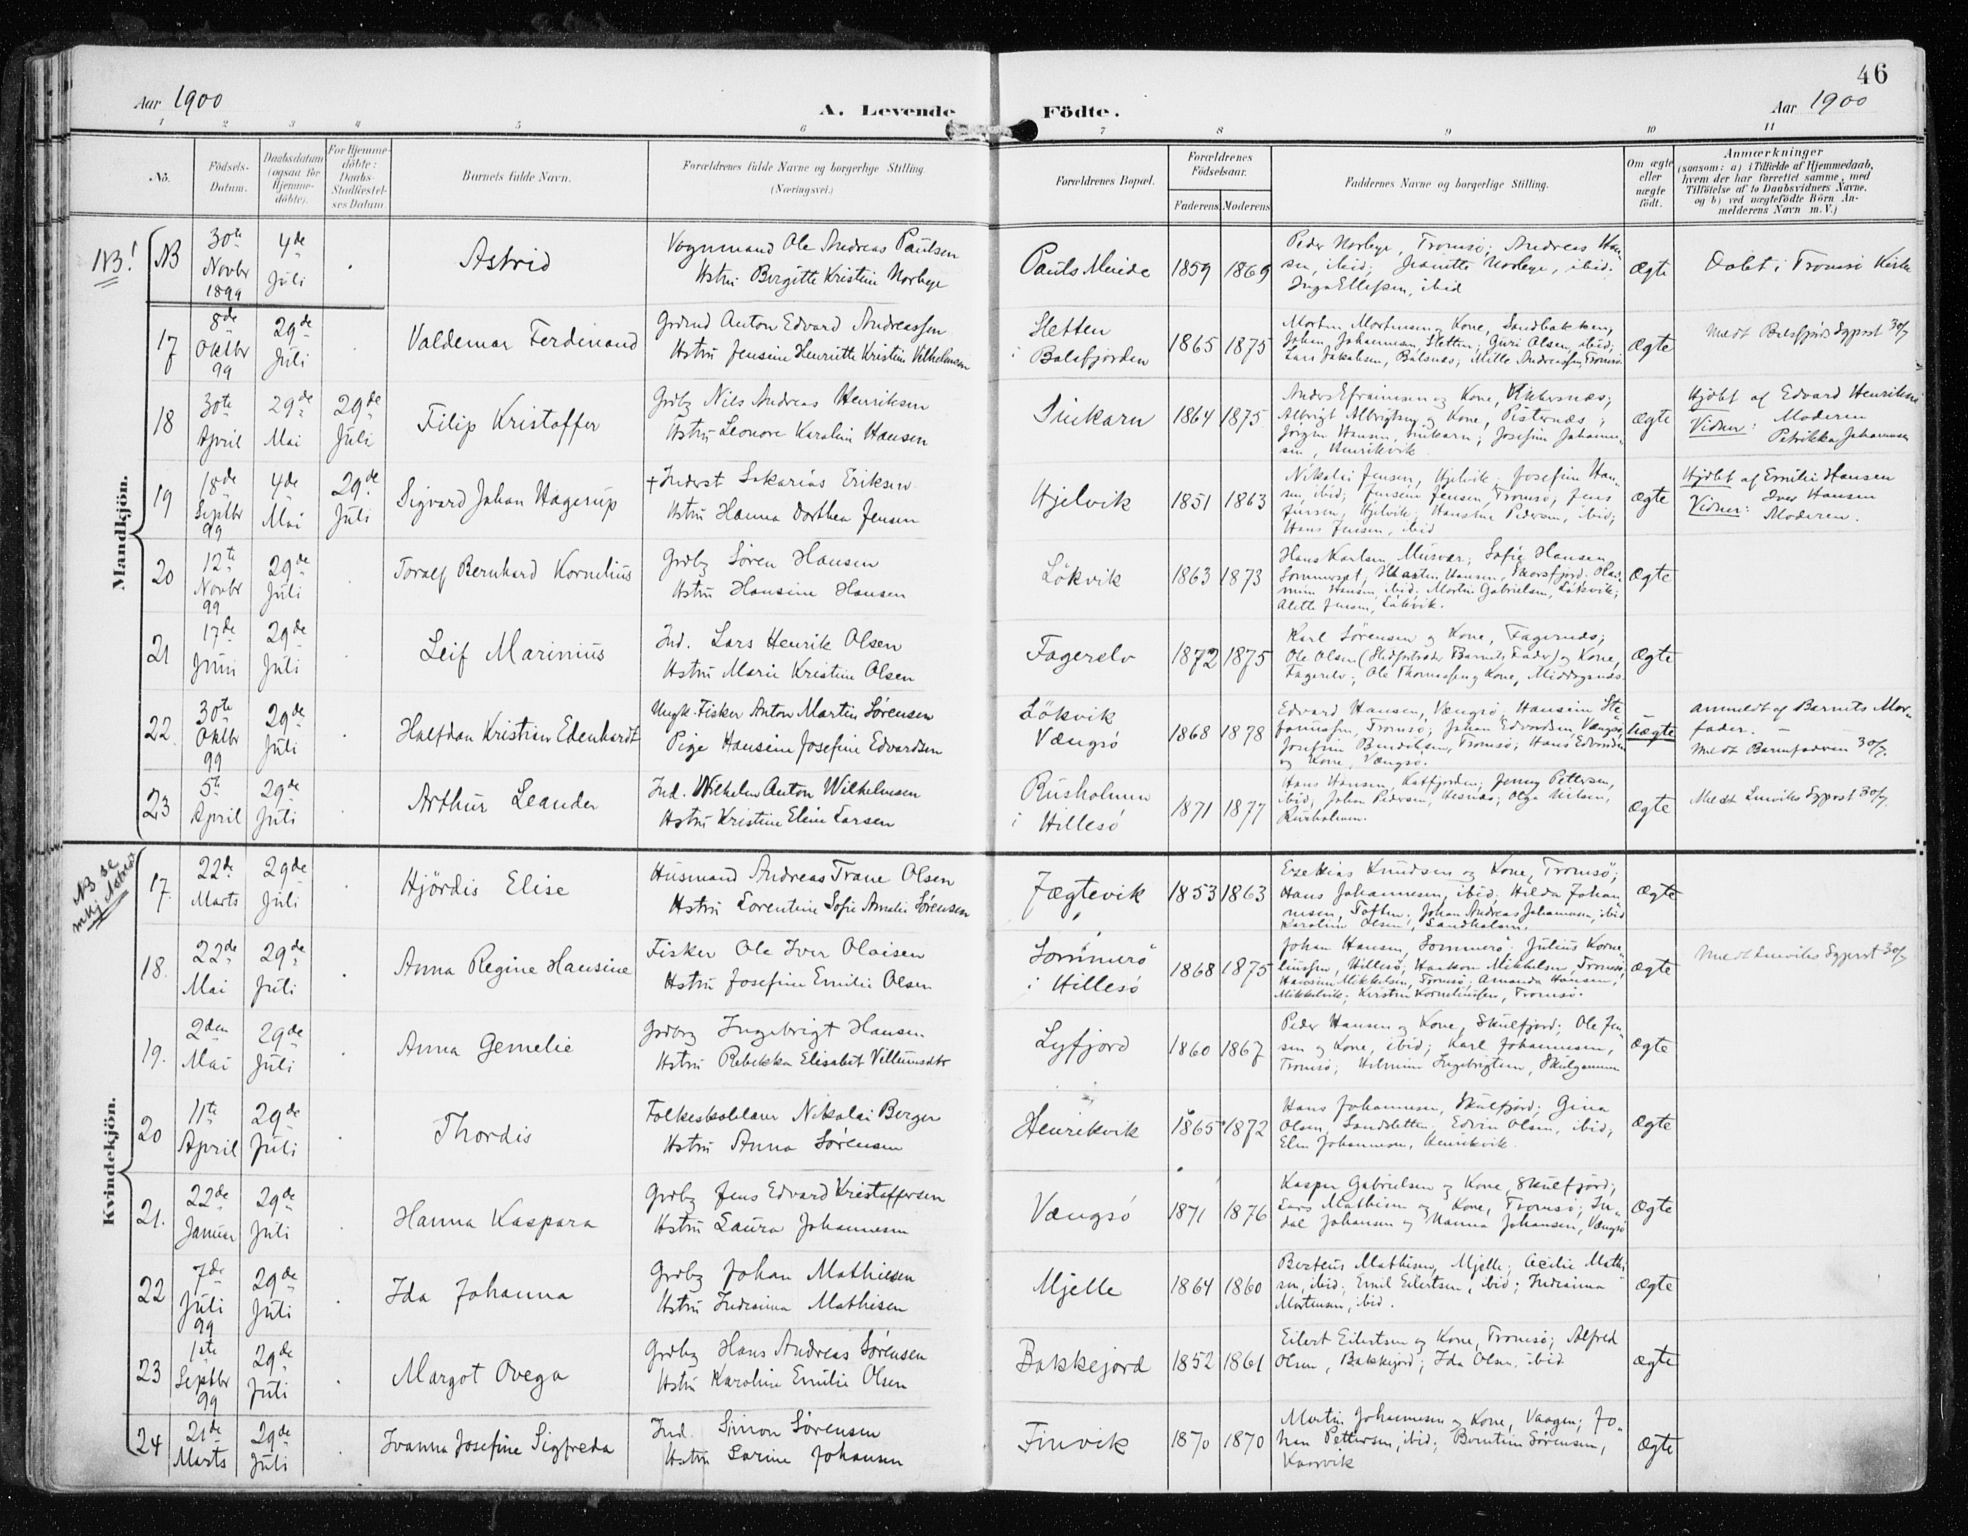 46
Aar 1900
A. Levende Födte.
Aar 1900
1 2 3 4 5 6 7 8 9 10 11
No.
Födsels-
Datum.
Daabsdatum
(ogsaa for
Hjemme-
döbte).
For Hjemme-
döbte:
Daabs-
Stadfæstel-
ses Datum.
Barnets fulde Navn.
Forældrenes fulde Navne og borgerlige Stilling
(Næringsvei.)
Forældrenes Bopæl.
Forældrenes
Födselsaar.
Faderens Moderens
Faddernes Navne og borgerlige Stilling.
Om ægte
eller
uægte
födt.
Anmærkninger
(saasom: a) i Tilfælde af Hjemmedaab,
hvem der har forrettet samme, med
Tilföielse af to Daabsvidners Navne,
og b) ved uægtefödte Börn An-
melderens Navn m. V.)
Mandkjön.
NB!
NB
30te
Novbr
1899
4de
Juli
Astrid
Vognmand Ole Andreas Paulsen
Hstru Birgitte Kristine Norbye
Pauls Minde
1859 1869
Peder Norbye, Tromsö; Andreas Han-
sen, ibid; Jeanette Norbye, ibid.
Inga Ellefsen, ibid
Ægte
Döbt i Tromsö Kirke
17
8de
Oktbr
99
29de
Juli
Valdemar Ferdinand
Grdmd Anton Edvard Andreassen
Hstru Jensine Henriette Kristine Vilhelmsen
Sletten
i Balsfjorden
1865 1875
Morten Mortensen og Kone, Sandbakken,
Johan Johannesen Sletten; Guri Olsen, ibid;
Lars Jakobsen, Balsnæs; Mille Andreassen, Tromsö
Ægte
Meldt Balsfjords Sgprst 30/7
18
30te
April
29de
Mai
29de
Juli
Filip Kristoffer
Grdbr Nils Andreas Henriksen
Hstru Leonore Karoline Hansen
Sinkarn
1864 1875
Anders Efraimsen og Kone, Akkersnæs;
Albrigt Albrigtsen og Kone, Pisternæs;
Jörgen Hansen, Sinkarn; Josefine Johanne-
sen, Henrikvik
Ægte
Hjdbt af Edvard Henriksen
Vidner: Moderen
Petrikka Johannesen
19
18de
Septbr
99
4de
Mai
29de
Juli
Sigvard Johan Hagerup
+ Inderst Sakarias Eriksen
Hstru Hanna Dorthea Jensen
Hjelvik
1851 1863
Nikolai Jensen, Hjelvik, Josefine Han-
sen, ibid; Jensine Jensen, Tromsö; Jens
Jensen, Hjelvik; Hanstine Pedersen, ibid;
Hans Jensen, ibid
Ægte
Hjdbt af Emilie Hansen
Vidner: Iver Hansen
Moderen.
20
12te
Novbr
99
29de
Juli
Toralf Bernhard Kornelius
Grdbr Sören Hansen
Hstru Hansine Hansen
Lökvik
1863 1873
Hans Karlsen, Musvær; Sofie Hansen,
Sommerset; Martin Hansen, Thorsfjord;
Hansen, ibid; Martin Gabrielsen, Lökvik;
Alette Jensen, Lökvik.
Ægte
21
17de
Juni
29de
Juli
Leif Marinius
Ind. Lars Henrik Olsen
Hstru Marie Kristine Olsen
Fagerelv
1872 1875
Karl Sörensen og Kone, Fagernæs;
Ole Olsen (Barnets Fader) og Kone,
Fagerelv; Ole Thomassen og Kone, Middagsnæs
Ægte
22
30te
Oktbr
99
29de
Juli
Halfdan Kristian Edenhardt
Ungk. Fisker Anton Martin Sörensen
Pige Hansine Josefine Edvardsen
Lökvik
Vængsö
1868 1878
Edvard Hansen, Vængsö; Hansine Ste-
fanussen, Tromsö; Johan Edvardsen, Vængsö
Josefine Bendiksen, Tromsö; Hans Edvardsen
og Kone, Vængsö.
Uægte
anmeldt af Barnets Mor-
fader. –
Meldt Barnefaderen 30/7.
23
5te
April
29de
Juli
Arthur Leander
Ind. Vilhelm Anton Wilhelmsen
Hstru Kristine Eline Larsen
Rusholmen
i Hillesö
1871 1877
Hans Hansen, Katfjorden; Jenny Pettersen,
ibid; Johan Pedersen, Hesnæs; Olga Nilsen,
Rusholmen.
Ægte
Meldt Lenviks Sgprst 30/7
Kvindekjön.
NB se
mkj Astrid
17.
22de
Marts
29de
Juli
Hjördis Elise
Husmand Andreas Trane Olsen
Hstru Lorentine Sofie Amalie Sörensen
Jægtevik
1853 1863
Ezekias Knudsen og Kone, Tromsö;
Hans Johannesen, ibid; Hilda Johan-
nesen, Toften; Johan Andreas Johannesen, ibid
Karoline Olsen, Sandholmen.
Ægte
18.
22de
Mai
29de
Juli
Anna Regine Hansine
Fisker Ole Iver Olaisen
Hstru Josefine Emilie Olsen
Sommerö
i Hillesö
1868 1875
Johan Hansen, Sommerö; Julius Korne-
liussen, Hillesö; Haakon Mikkelsen, Tromsö,
Mikkelsen, Tromsö; Amanda Hansen,
Mikkelvik; Kirstin Korneliussen, Tromsö.
Ægte
Meldt Lenviks Sgprst 30/7
19.
2den
Mai
29de
Juli
Anna Gemelie
Grdbr Ingebrigt Hansen
Hstru Rebekka Elisabet Villumsdtr
Lyfjord
1860 1867
Peder Hansen og Kone, Skulfjord; Ole Jen-
sen og Kone, ibid; Karl Johannesen,
Tromsö; Helmine Ingebrigtsen, Skulgammen
Ægte
20
11te
April
29de
Juli
Thordis
Folkeskolelærer Nikolai Berger
Hstru Anna Sörensen
Henrikvik
1865 1872
Hans Johannesen, Skulfjord; Gina
Olsen, Sandsletten; Edvin Olsen, ibid;
Elen Johannesen, Henrikvik.
Ægte
21.
22de
Januar
29de
Juli
Hanna Kaspara
Grdbr Jens Edvard Kristoffersen
Hstru Laura Johannesen
Vængsö
1871 1876
Kasper Gabrielsen og Kone, Skulfjord;
Lars Mathisen og Kone, Tromsö; In-
dal Johansen og Hanna Johansen, Vængsö
Ægte
22
7de
Juli
99
29de
Juli
Ida Johanna
Grdbr Johan Mathisen
Hstru Indianna Mathisen
Mjelle
1864 1860
Berteus Mathisen, Mjelle; Cecilie Mathi-
sen, ibid; Emil Eilertsen, ibid; Indianna
Mortensen, ibid.
Ægte
23
1ste
Septbr
99
29de
Juli
Margot Ovega
Grdbr Hans Andreas Sörensen
Hstru Karoline Emilie Olsen
Bakkejord
1852 1861
Eilert Eilertsen og Kone, Tromsö; Alfred
Olsen, Bakkejord; Ida Olsen, ibid
Ægte
24
21de
Marts
29de
Juli
Ivanna Josefine Sigfreda
Ind. Simon Sörensen
Hstru Larine Johansen
Finvik
1870 1870
Martin Johannesen og Kone, Vaagen; Jo-
han Pettersen, ibid; Berntine Sörensen,
Kaarvik
Ægte